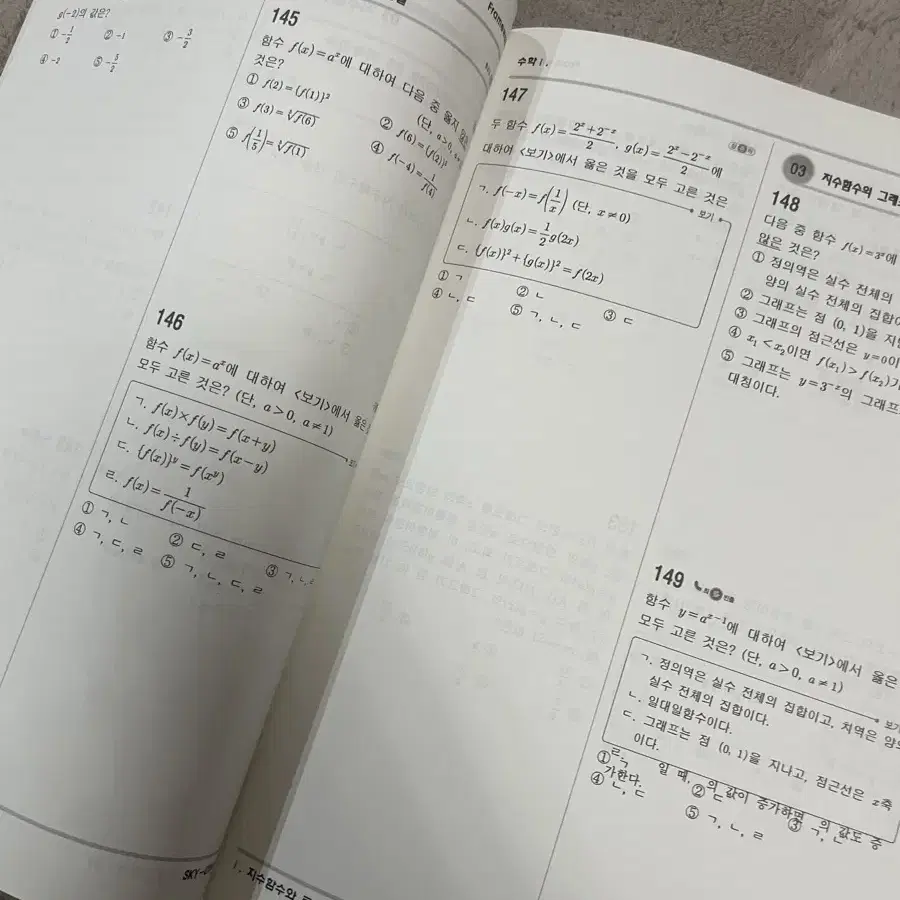 g(-2)의 값은?
① -1/2 ② -1 ③ -3/2
④ -2 ⑤ -5/2
145
함수 f(x)=a^x에 대하여 다음 중 옳지
것은? (단, a>0,
① f(2)={f(1)}^2 ② f(6)={f(2)}^3
③ f(3)=√f(6) ④ f(-4)=1/f(4)
146
함수 f(x)=a^x에 대하여 <보기>에서 옳은
모두 고른 것은? (단, a>0, a≠1)
ㄱ. f(x)×f(y)=f(x+y)
ㄴ. f(x)÷f(y)=f(x-y)
ㄷ. {f(x)}^y=f(x^y)
ㄹ. f(x)=1/f(-x)
① ㄱ, ㄴ ② ㄷ, ㄹ ③ ㄱ, ㄴ,
④ ㄱ, ㄷ, ㄹ ⑤ ㄱ, ㄴ, ㄷ, ㄹ
수학 I.
147
두 함수 f(x)=(2^x+2^-x)/2, g(x)=(2^x-2^-x)/2에
대하여 <보기>에서 옳은 것을 모두 고른 것은
보기
ㄱ. f(-x)=f(1/x) (단, x≠0)
ㄴ. f(x)g(x)=1/2 g(2x)
ㄷ. {f(x)}^2+{g(x)}^2=f(2x)
① ㄱ ② ㄴ ③ ㄷ
④ ㄴ, ㄷ ⑤ ㄱ, ㄴ, ㄷ
03 지수함수의 그래
148
다음 중 함수 f(x)=3^x에
않은 것은?
① 정의역은 실수 전체의
양의 실수 전체의 집합
② 그래프는 점 (0, 1)을 지
③ 그래프의 점근선은 y=0이
④ x₁<x₂이면 f(x₁)>f(x₂)
⑤ 그래프는 y=3^-x의 그래프
대칭이다.
149
함수 y=a^(x-1)에 대하여 <보기>에서 옳은
모두 고른 것은? (단, a>0, a≠1)
ㄱ. 정의역은 실수 전체의 집합이고, 치역은 양의
실수 전체의 집합이다.
ㄴ. 일대일함수이다.
ㄷ. 그래프는 점 (0, 1)을 지나고, 점근선은 x축
이다.
ㄹ. 일 때, 의 값이 증가하면 의 값도 증
가한다.
① ㄱ ② ㄷ ③ ㄱ, ㄴ
④ ㄴ, ㄷ ⑤ ㄱ, ㄴ, ㄹ
I. 지수함수와